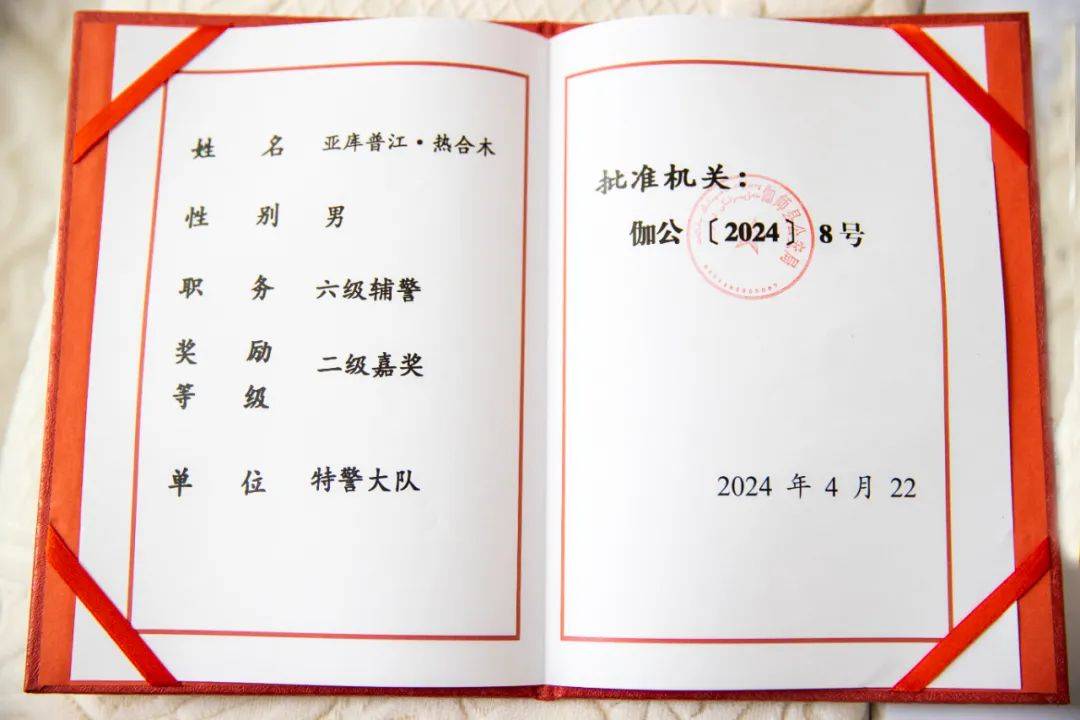 姓 名 亚库普江·热合木
性 别 男
职 务 六级辅警
奖 励
等 级 二级嘉奖
单 位 特警大队
批准机关：
伽公〔2024〕8号
伽师县公安局
2024 年 4 月 22